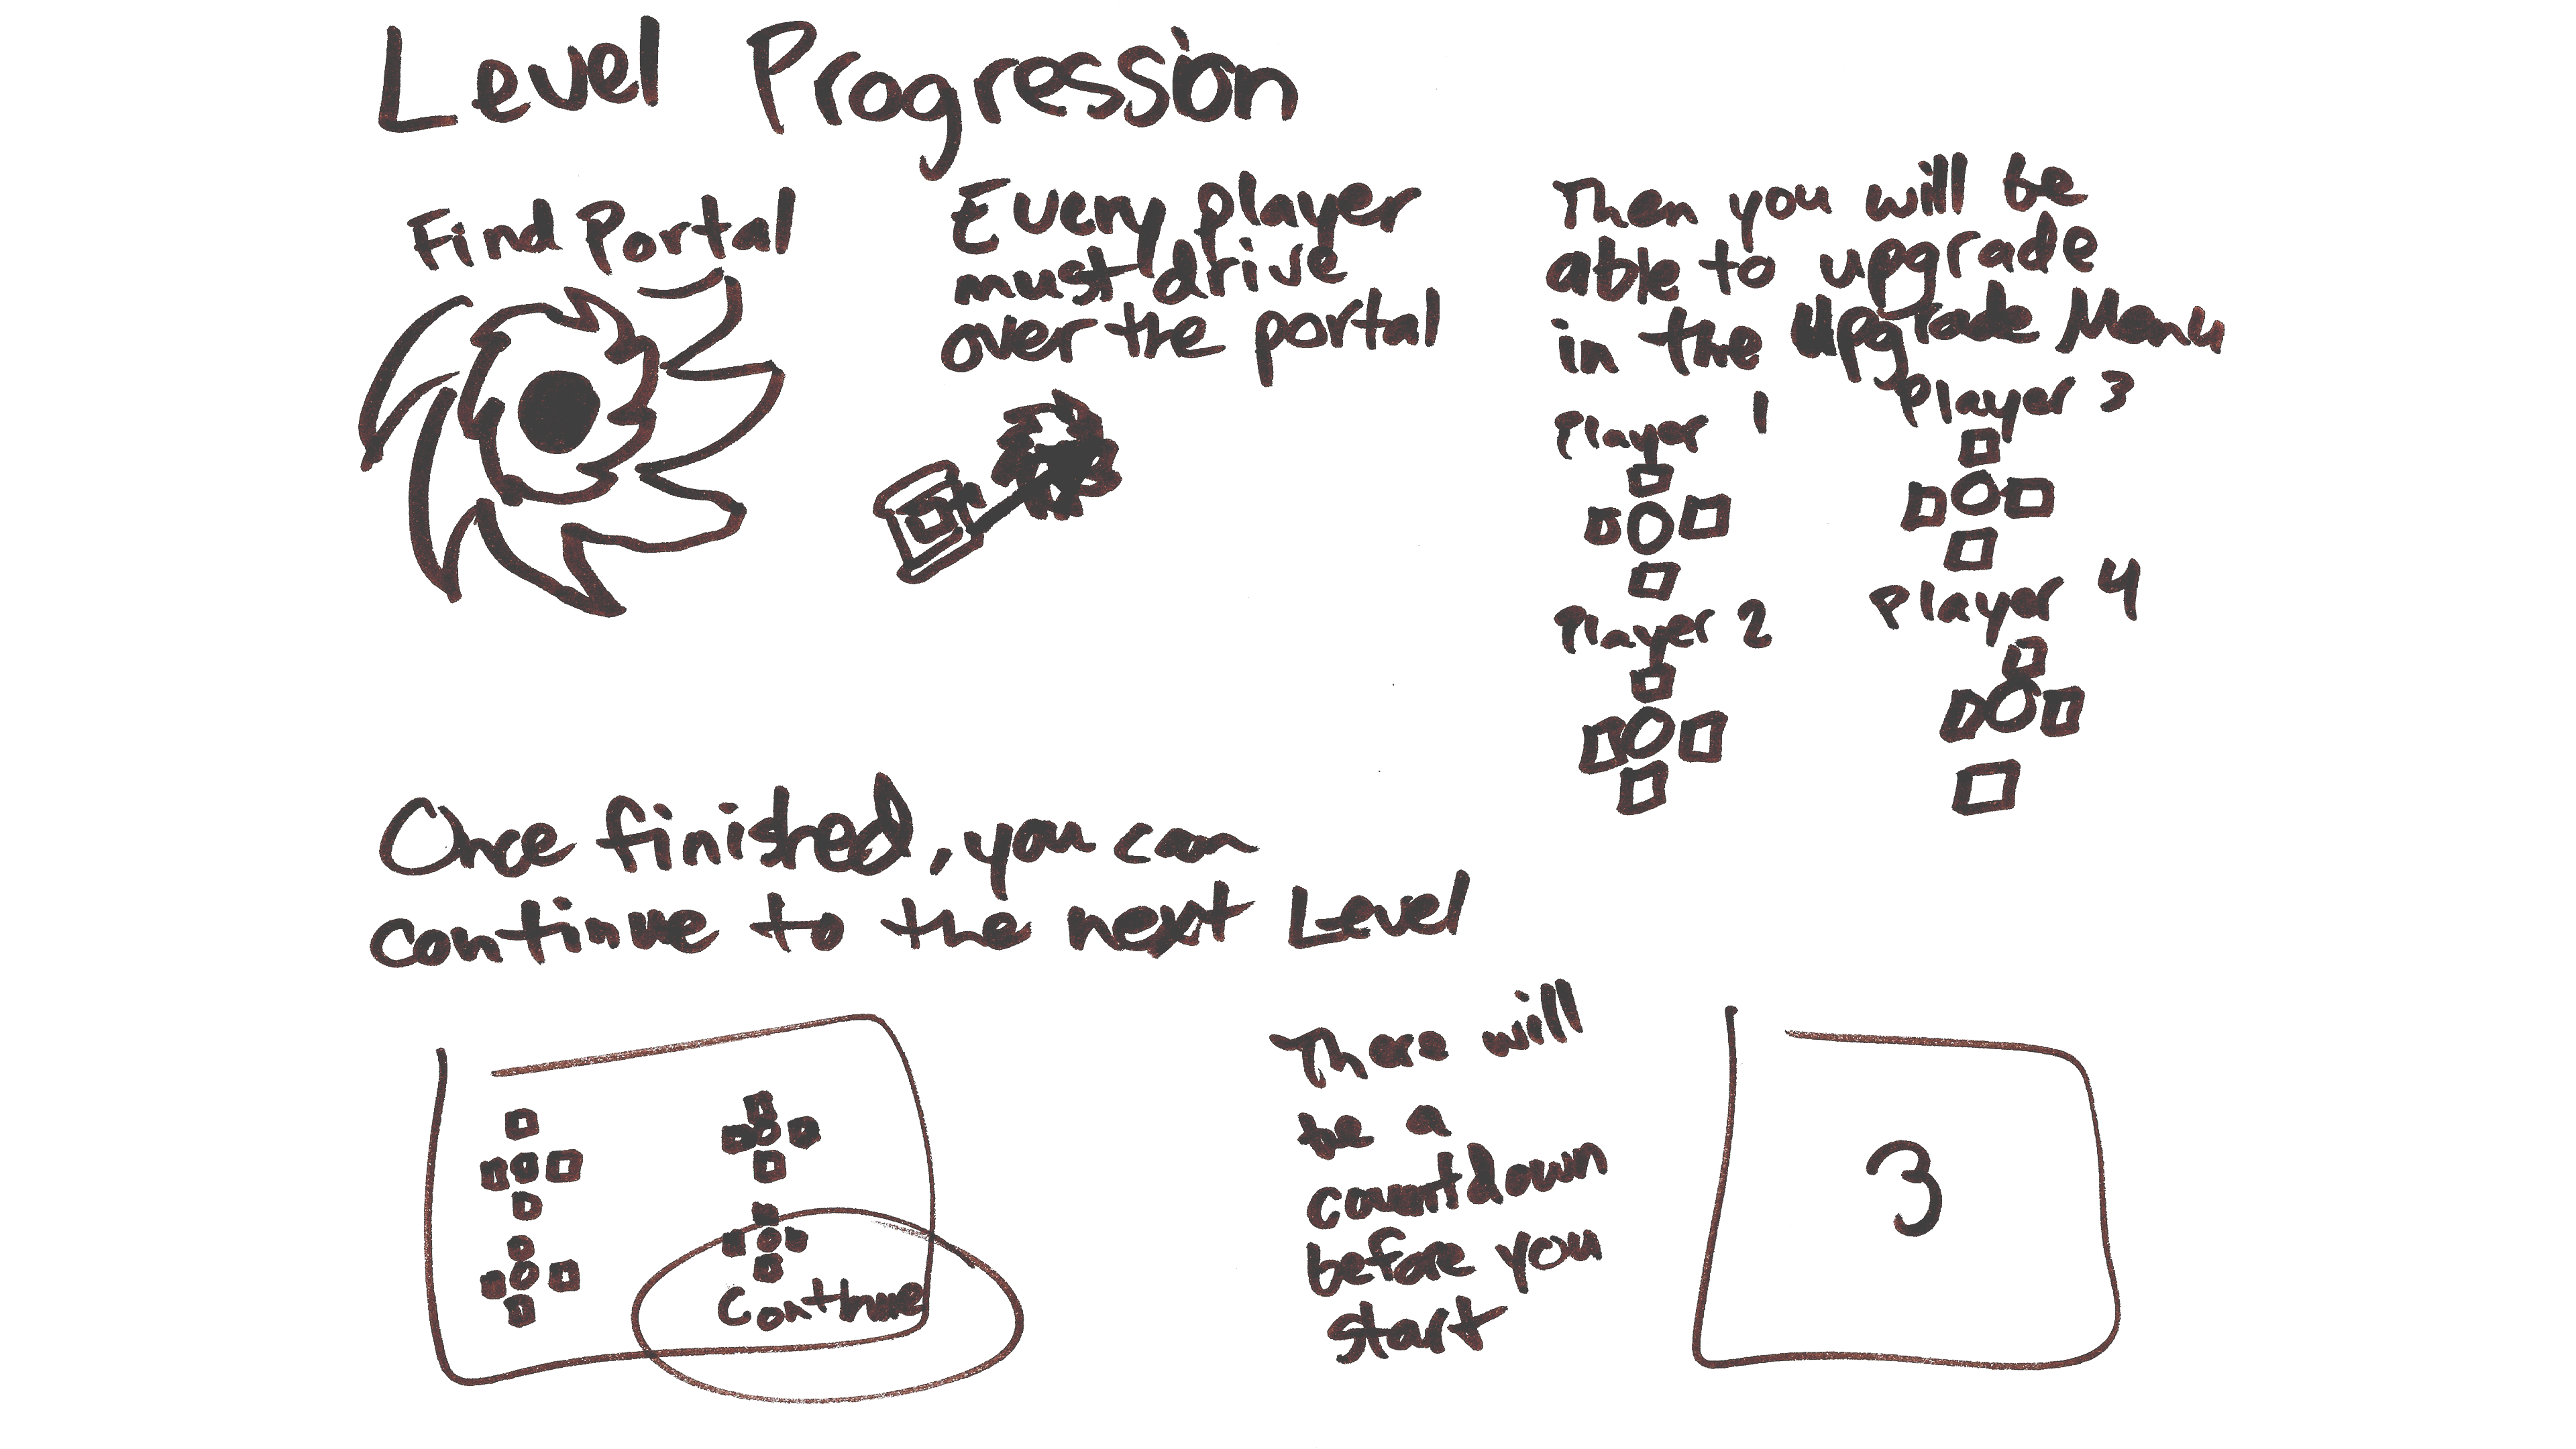 Level Progression
Find Portal
Every player
must drive
over the portal
Then you will be
able to upgrade
in the Upgrade Menu
Player 1
Player 3
Player 2
Player 4
Once finished, you can
continue to the next Level
Continue
There will
be a
countdown
before you
start
3